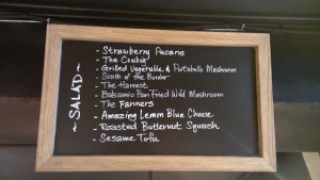 ~ SALAD ~
- Strawberry Pecans
- The Cowboy
- Grilled Vegetable & Portabello Mushroom
- South of the Border
- The Harvest
- Balsamic Pan Fried Wild Mushroom
- The Farmers
- Amazing Lemon Blue Cheese
- Roasted Butternut Squash
- Sesame Tofu